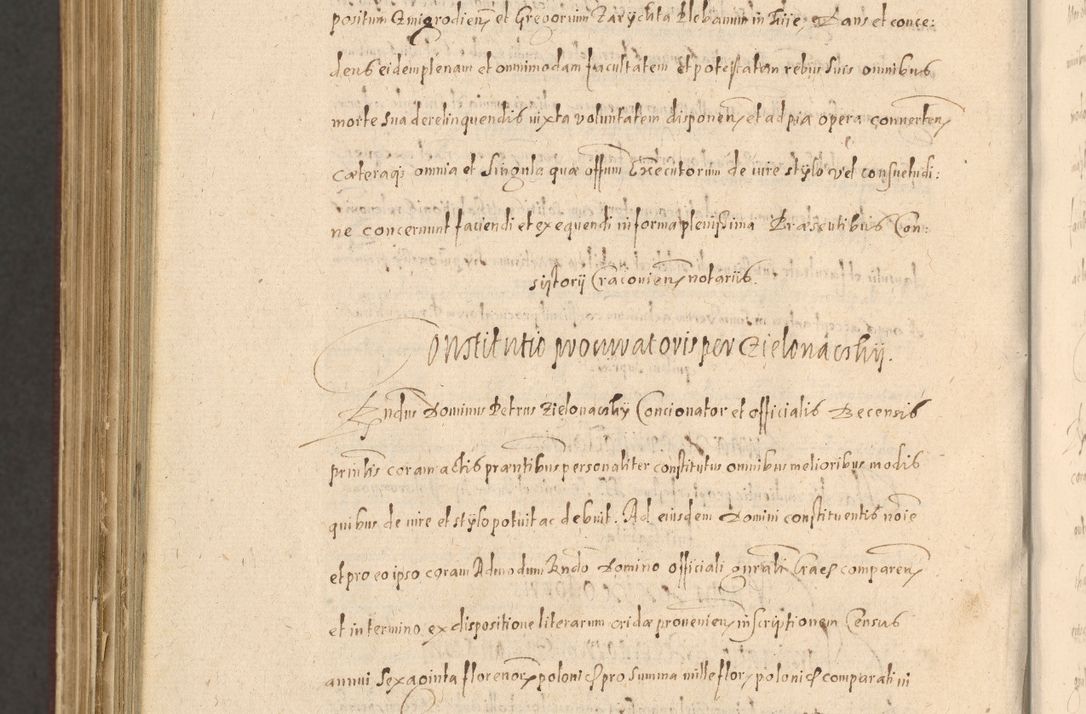 positum Zmigrodien, et Gregorium Zarychta Plebanum in Dans et conce:
dens eidem plenam et omnimodam facultatem et potestatem rebus suis omnibus
morte sua derelinquendis iuxta voluntatem disponen, et ad pia opera conuerten,
cæteraq; omnia et singula quæ offium Executorum de iure stylo vel consuetudi:
ne concernunt faciendi et exequendi in forma plenissima Præsentibus Con:
sistorij Cracouien, notariis.
Constitutio procuratoris per Zielonaczky.
Rndus Dominus Petrus Zielonaczky Concionator et officialis Becensis
prinlis coram actis præntibus personaliter constitutus omnibus melioribus modis
quibus de iure et stylo potuit ac debuit. Ad eiusdem Domini constituentis noīe
et pro eo ipso coram Admodum Rndo Domino officiali gnrali Crac comparen,
et in termino ex dispositione literarum cridæ prouenien, inscriptionem Census
annui sexaginta florenor, polonic pro summa mille flor, polonic comparati in